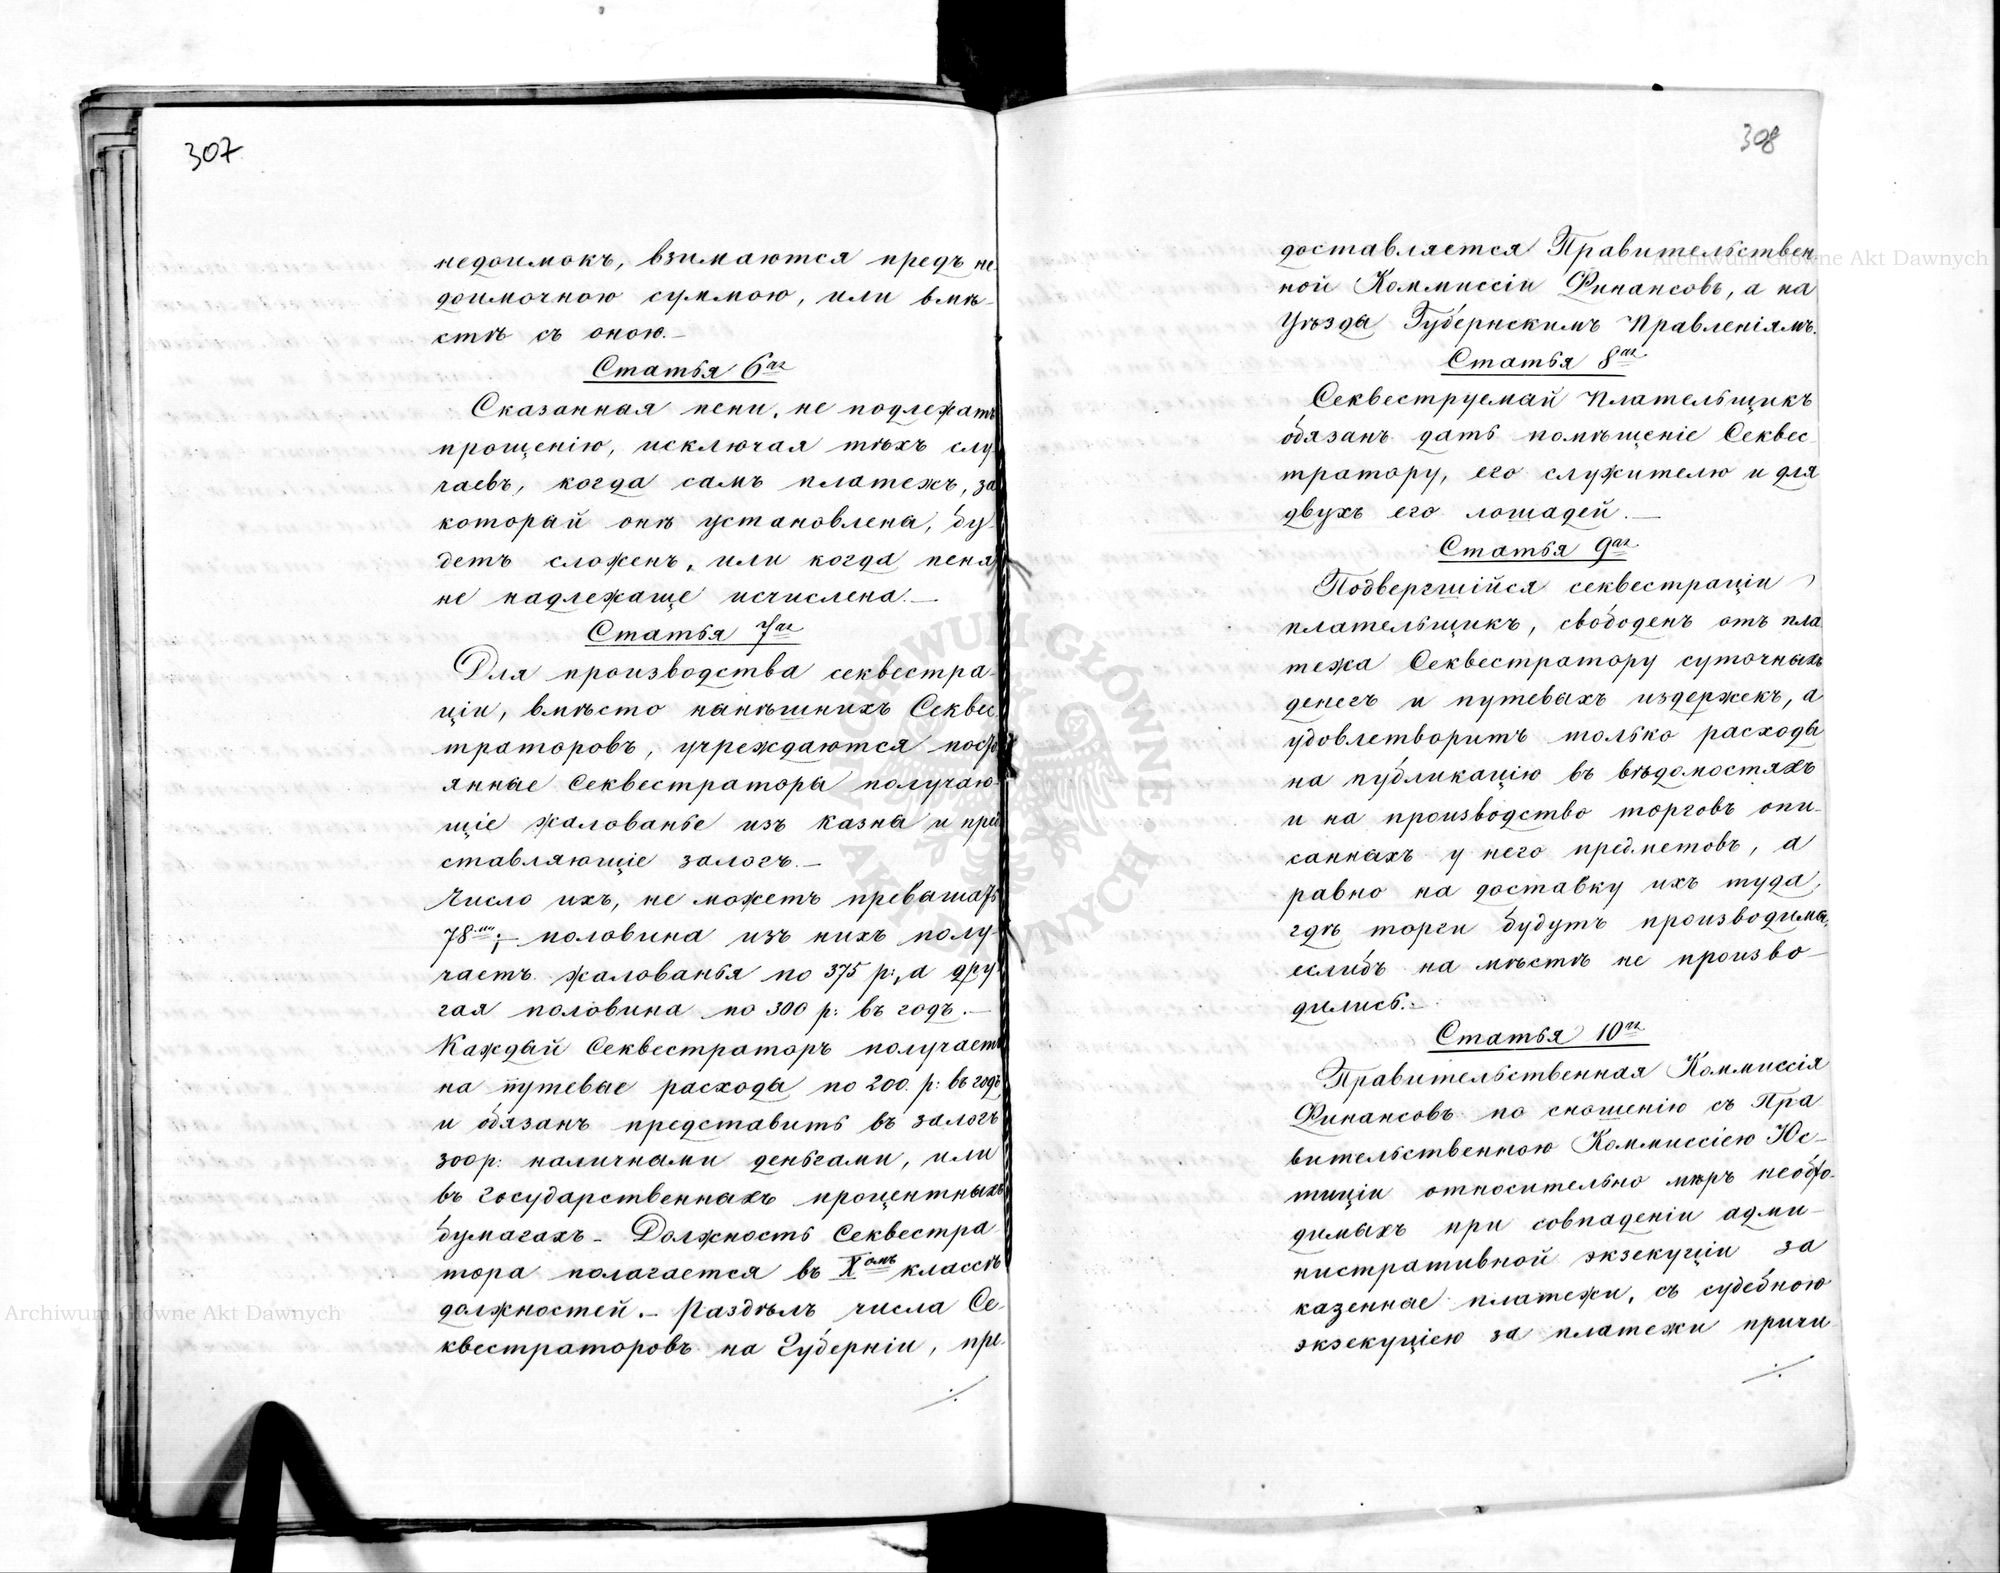 307
недоимокъ, взимаются предъ не-
доимочною суммою, или вмѣ-
стѣ съ оною.—
Статья 6ая
Сказанная пени, не подлежатъ
прощенію, исключая тѣхъ слу-
чаевъ, когда самъ платежъ, за
который онѣ установлена, бу-
детъ сложенъ, или когда пеня
не надлежаще исчислена.—
Статья 7ая
Для производства секвестра-
ціи, вмѣсто нынѣшнихъ Секвес-
траторовъ, учреждаются посто-
янные Секвестраторы получаю-
щіе жалованье изъ казны и пред-
ставляющіе залогъ.—
Число ихъ, не можетъ превышать
78ми;— половина изъ нихъ полу-
чаетъ жалованья по 375 р:, а дру-
гая половина по 300 р: въ годъ.—
Каждый Секвестраторъ получаетъ
на путевые расходы по 200. р: въ годъ
и обязанъ представить въ залогъ
300 р: наличными деньгами, или
въ государственныхъ процентныхъ
бумагахъ – Должность Секвестра
тора полагается въ Xомъ классѣ
должностей.— Раздѣлъ числа Се-
квестраторовъ на Губерніи, пре-
./.
308
доставляется Правительствен
ной Коммиссіи Финансовъ, а на
Уѣзды Губернскимъ Правленіямъ.
Статья 8ая
Секвеструемый Плательщикъ
обязанъ дать помѣщеніе Секвес-
тратору, его служителю и для
двухъ его лошадей.—
Статья 9ая
Подвергшійся секвестраціи
плательщикъ, свободенъ отъ пла
тежа Секвестратору суточныхъ
денегъ и путевыхъ издержекъ, а
удовлетворитъ только расходы
на публикацію въ вѣдомостяхъ
и на производство торговъ опи-
санныхъ у него предметовъ, а
равно на доставку ихъ туда,
гдѣ торги будутъ производимы,
еслибъ на мѣстѣ не произво-
дились.—
Статья 10ая
Правительственная Коммиссія
Финансовъ по сношенію съ Пра
вительственною Коммиссіею Юс-
тиціи относительно мѣръ необхо-
димыхъ при совпаденіи адми-
нистративной экзекуціи за
казенные платежи, съ судебною
экзекуціею за платежи причи
./.
Archiwum Główne Akt Dawnych
Archiwum Główne Akt Dawnych
ARCHIWUM GŁÓWNE AKT DAWNYCH